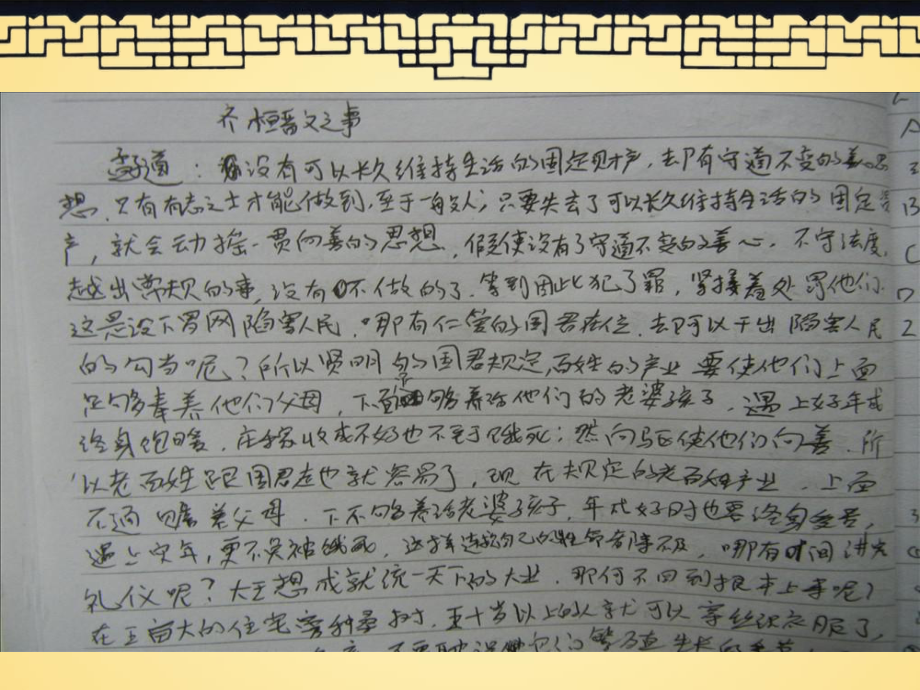 齐桓晋文之事
孟子道：没有可以长久维持生活的固定财产，却有守道不变的善心思
想，只有有志之士才能做到，至于一般人；只要失去了可以长久维持生活的固定
产，就会动摇一贯向善的思想。假使没有了守道不变的善心，不守法度，
越出常规的事，没有不做的了。等到因此犯了罪，紧接着处罚他们
这是设下罗网陷害人民，哪有仁爱的国君在位，却可以干出陷害人民
的勾当呢？所以贤明的国君规定百姓的产业要使他们上面
足够奉养他们父母，下面够养活他们的老婆孩子，遇上好年成
终身饱暖，庄稼收成不好也不至于饿死；然向驱使他们向善，所
以老百姓跟国君走也就容易了，现在规定的老百姓产业，上面
不通赡养父母，下不够养活老婆孩子，年成好时也要终身受苦，
遇上灾年，更不免被饿死，这样连救自己的性命都，哪有时间讲究
礼仪呢？大王想成就统一天下的大业，那何不回到根本上来呢？
在五亩大的住宅旁种桑树，五十岁以上的人就可以穿丝织衣服了，
生长的季节